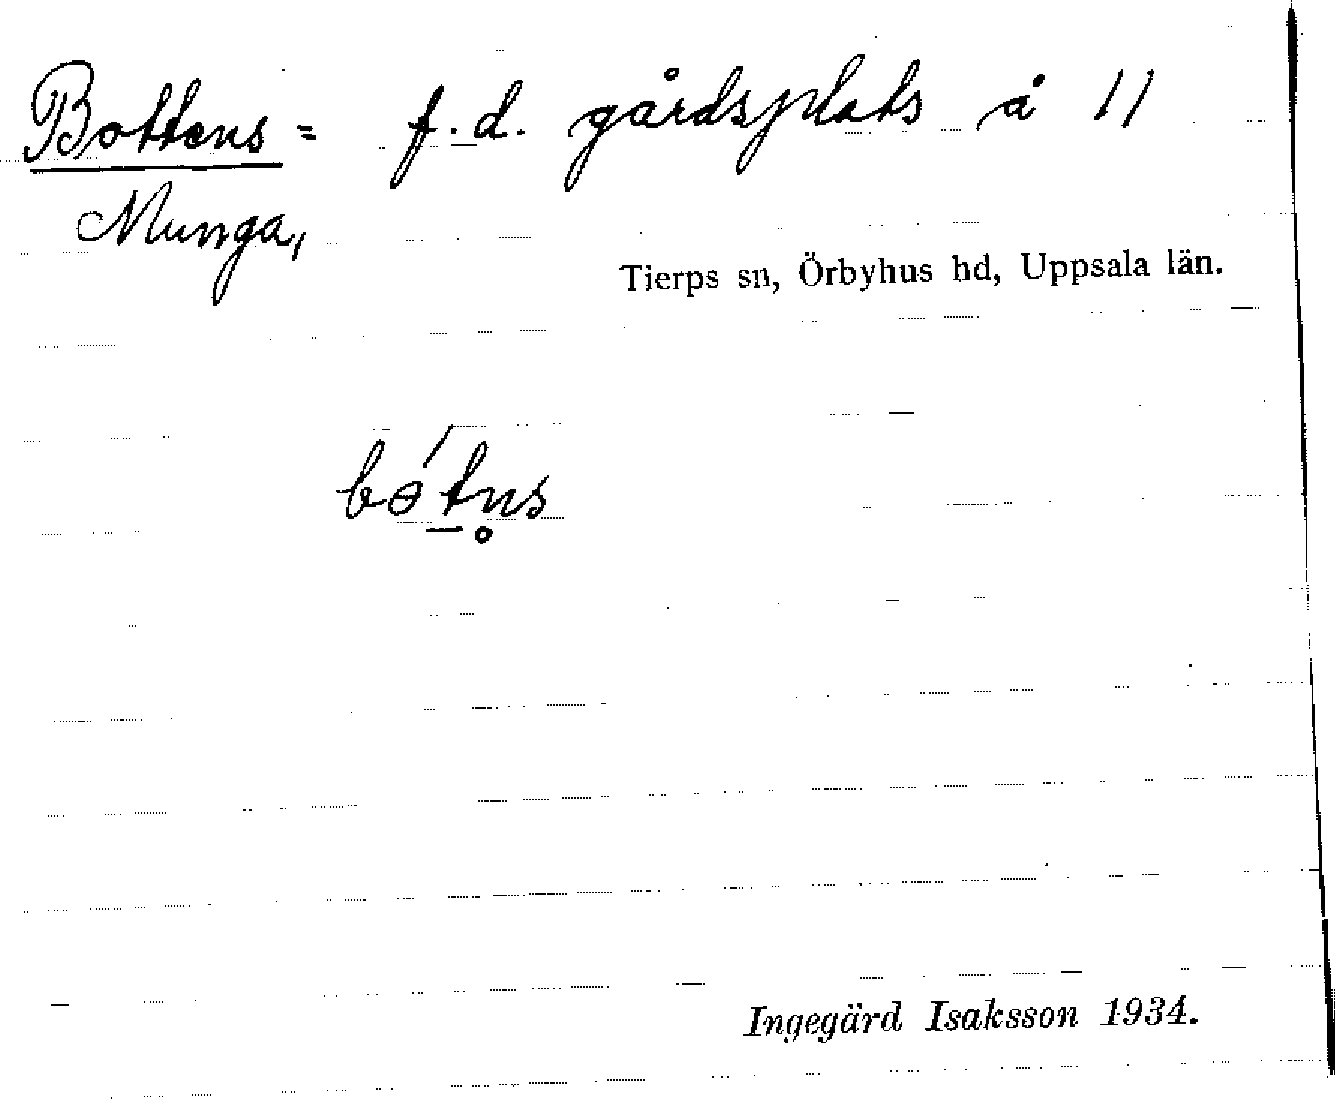 Bottens = f.d. gårdsplats å 11
Munga,
Tierps sn, Örbyhus hd, Uppsala län.
bɵ́t̠n̥s
Ingegärd Isaksson 1934.